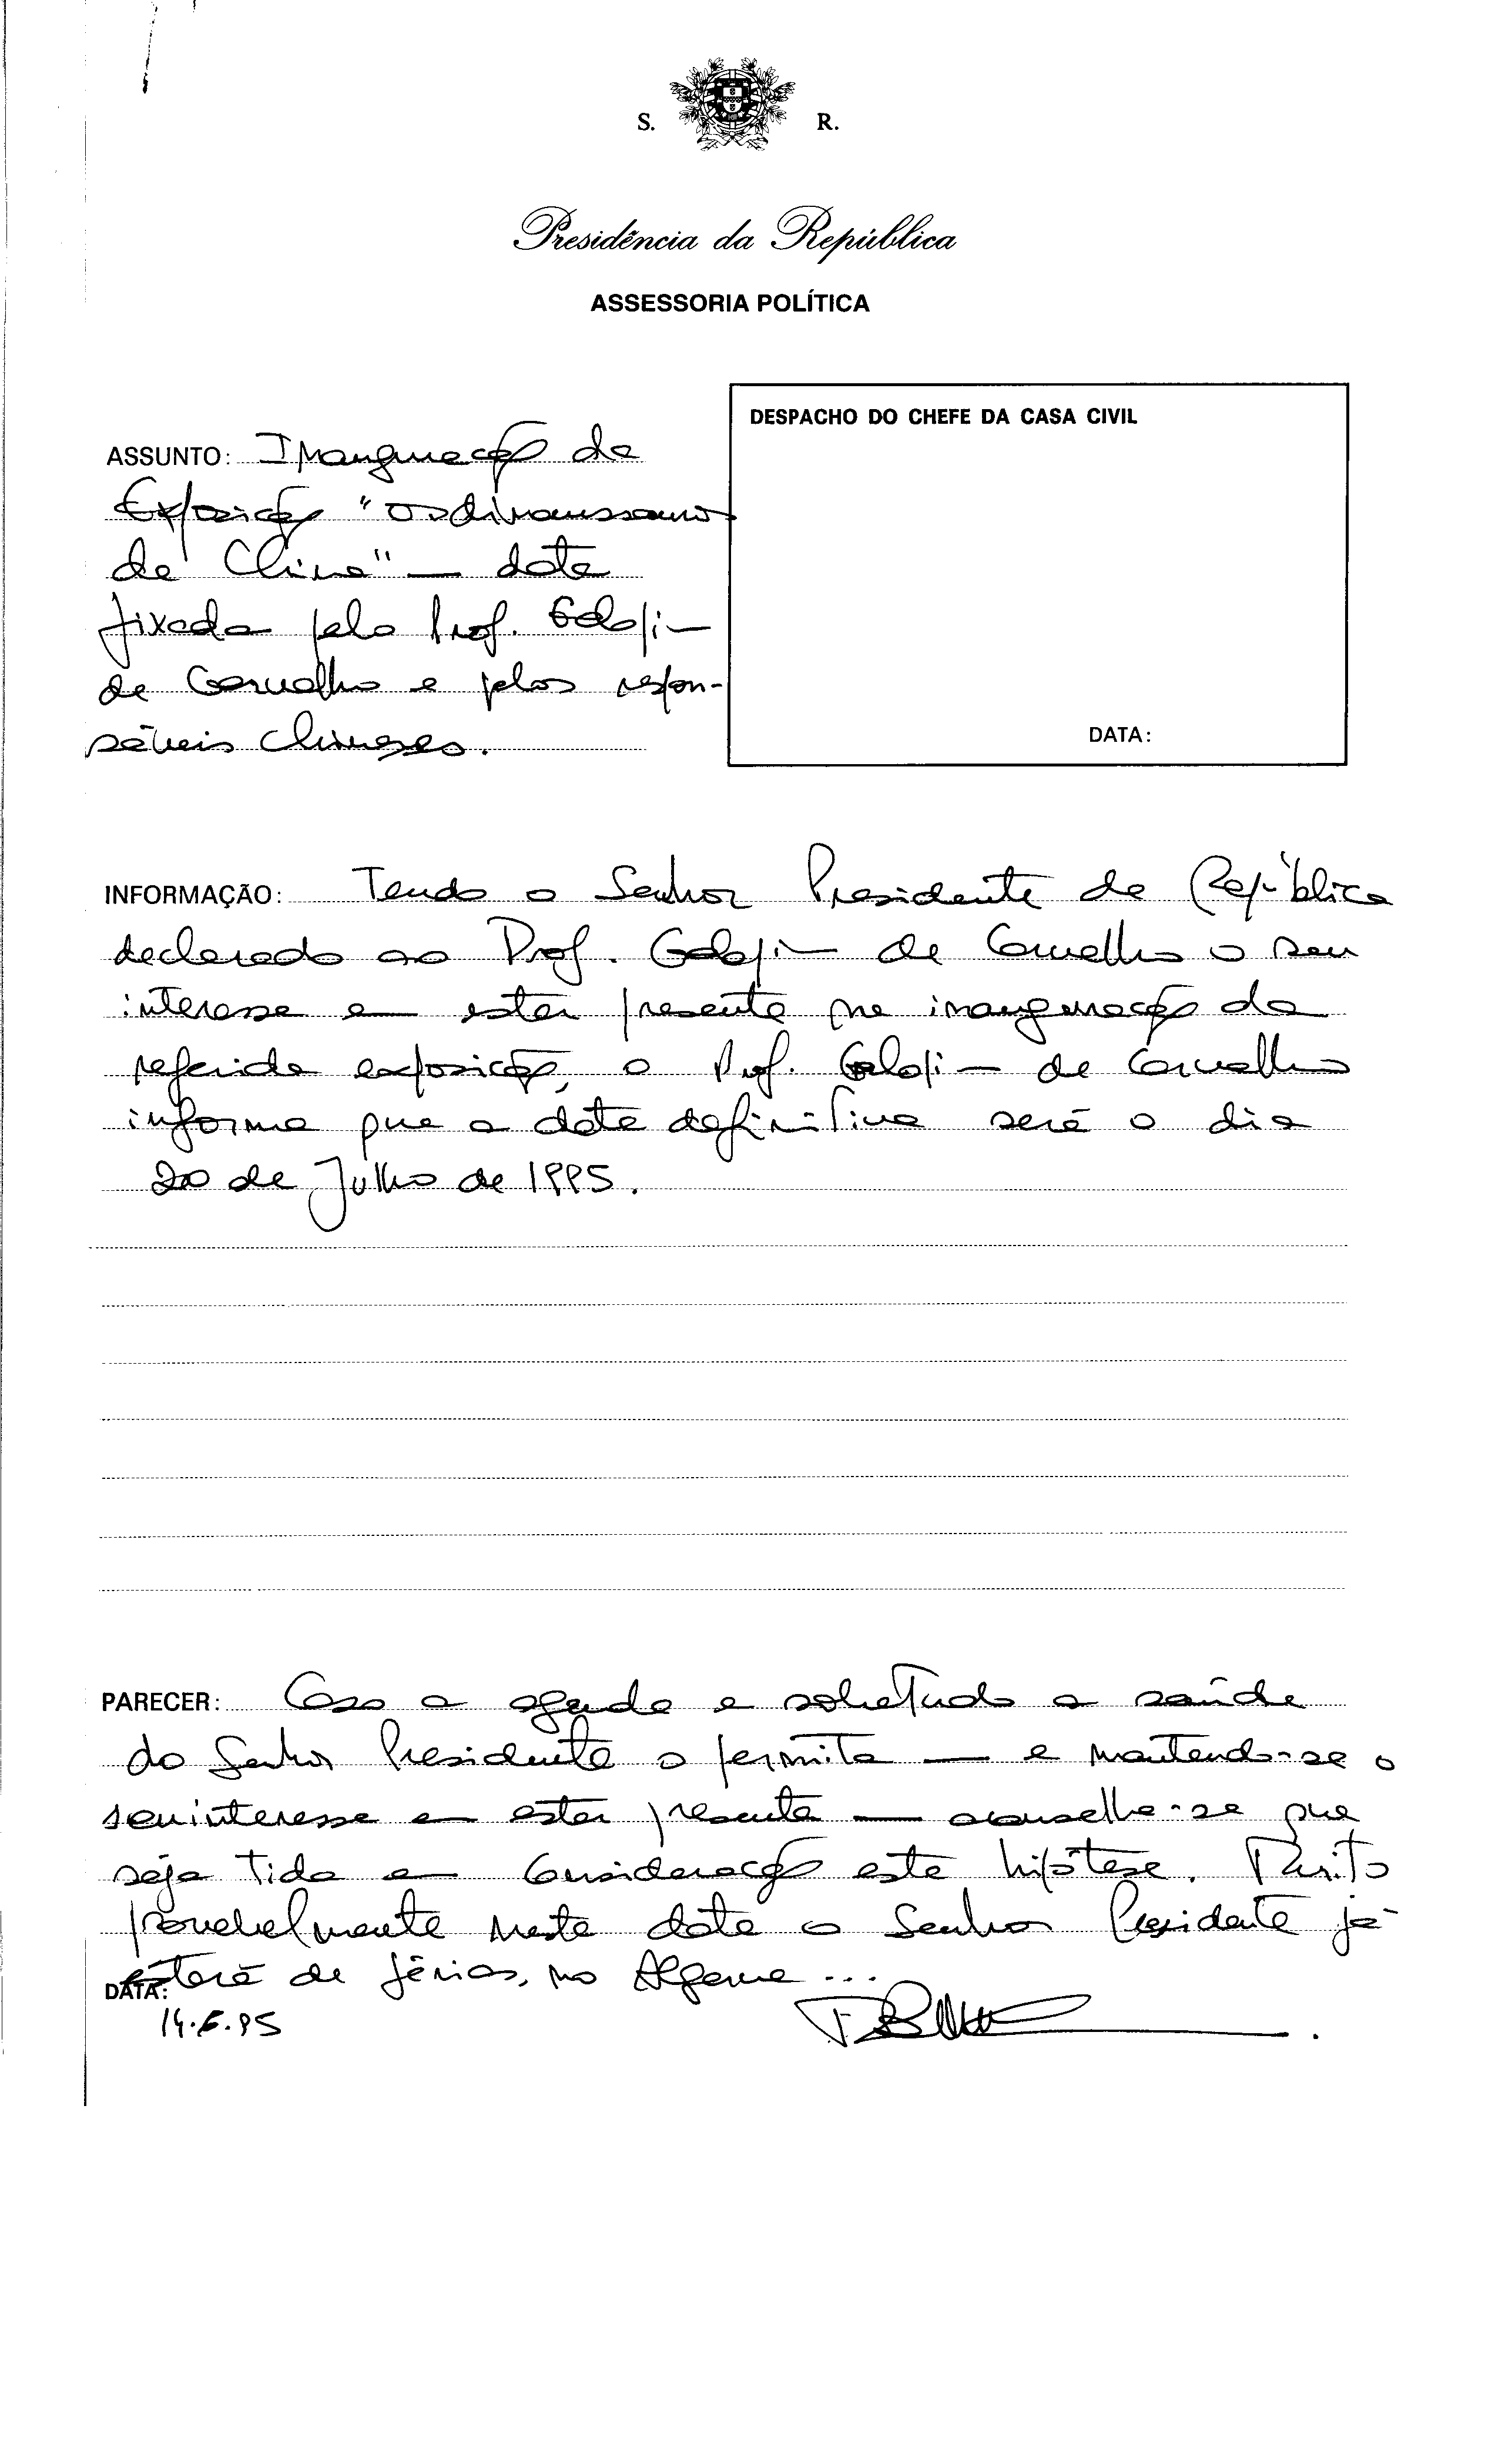 S. R.
Presidência da República
ASSESSORIA POLÍTICA
DESPACHO DO CHEFE DA CASA CIVIL
DATA:
ASSUNTO: Inauguração da
Exposição "Os dinossauros
da China" — data
fixada pelo Prof. Galopim
de Carvalho e pelos respon-
sáveis chineses.
INFORMAÇÃO: Tendo o Senhor Presidente da República
declarado ao Prof. Galopim de Carvalho o seu
interesse em estar presente na inauguração da
referida exposição, o Prof. Galopim de Carvalho
informa que a data definitiva será o dia
20 de Julho de 1995.
PARECER: Caso a agenda e sobretudo a saúde
do Senhor Presidente o permita — e mantendo-se o
seu interesse em estar presente — aconselha-se que
seja tida em consideração esta hipótese. Muito
provavelmente nesta data o Senhor Presidente já
estará de férias, no Algarve...
DATA:
14.6.95